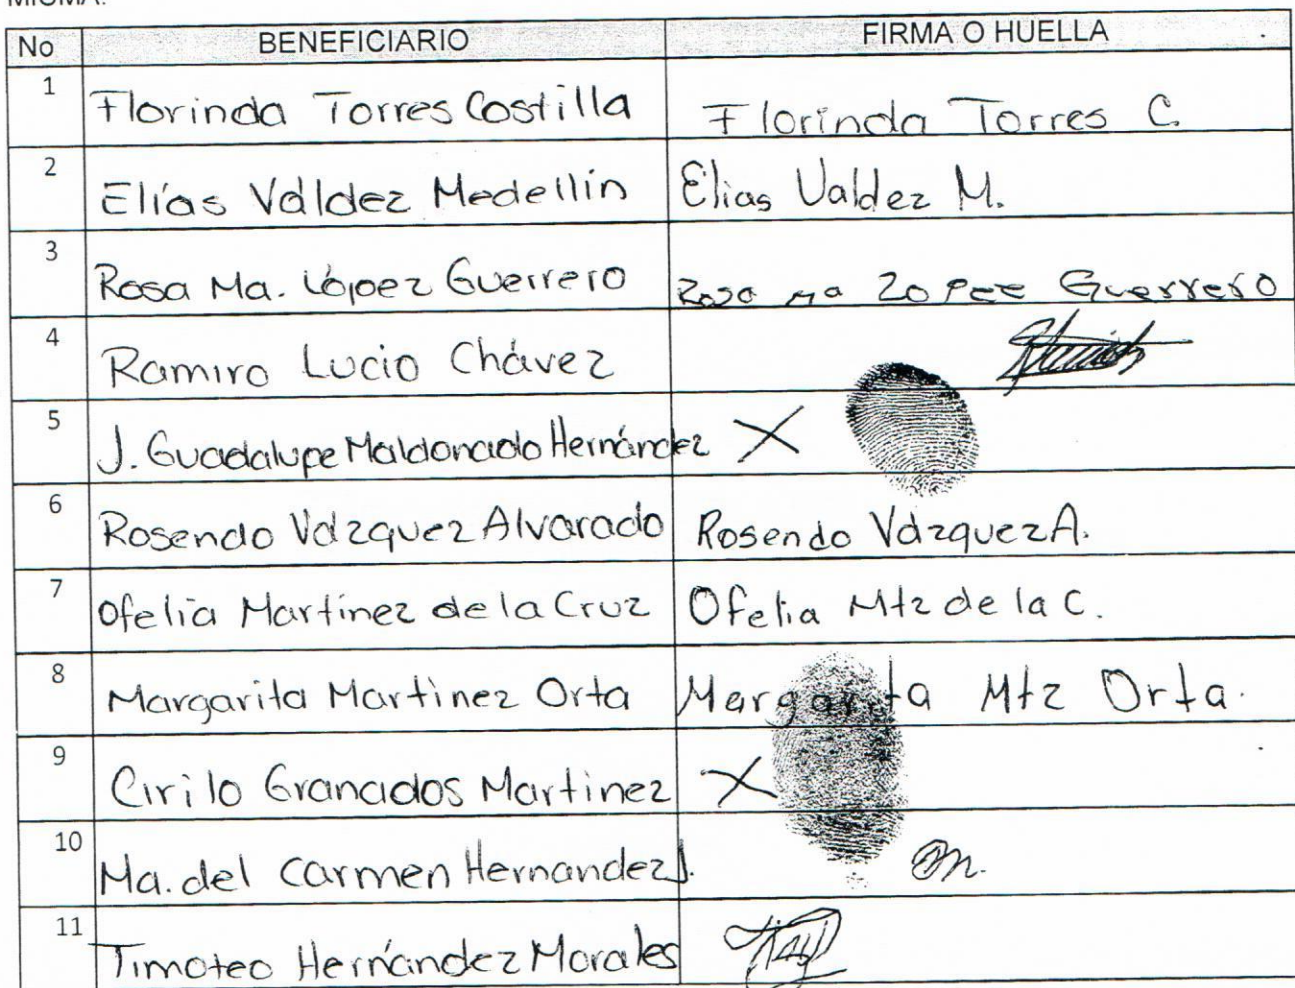 No BENEFICIARIO FIRMA O HUELLA
1 Florinda Torres Costilla Florinda Torres C.
2 Elías Váldez Medellín Elias Valdez M.
3 Rosa Ma. López Guerrero Rosa Ma Lopez Guerrero
4 Ramiro Lucio Chávez
5 J. Guadalupe Maldonado Hernández X
6 Rosendo Vázquez Alvarado Rosendo Vázquez A.
7 Ofelia Martínez de la Cruz Ofelia Mtz de la C.
8 Margarita Martinez Orta Margarita Mtz Orta.
9 Cirilo Granados Martinez X
10 Ma. del Carmen Hernandez J.
11 Timoteo Hernández Morales